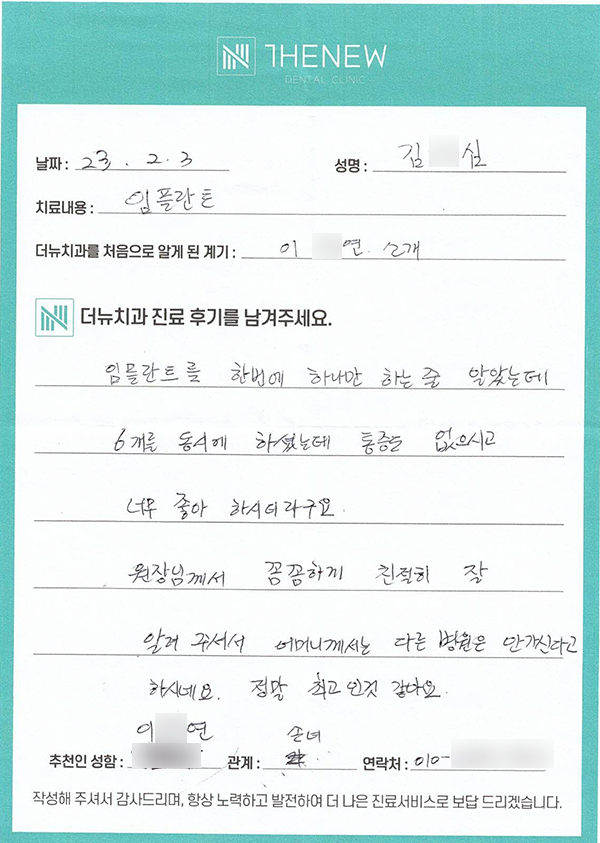 THENEW
DENTAL CLINIC
날짜 : 23 . 2 . 3 성명 : 김 실
치료내용 : 임플란트
더뉴치과를 처음으로 알게 된 계기 : 이 연. 소개
더뉴치과 진료 후기를 남겨주세요.
임플란트를 한번에 하나만 하는줄 알았는데
6개를 동시에 하셨는데 통증은 없으시고
너무 좋아 하시더라구요.
원장님께서 꼼꼼하게 친절히 잘
알려 주셔서 어머니께서는 다른 병원은 안가신다고
하시네요. 정말 최고인것 같아요.
이 연 손녀
추천인 성함 : 관계 : 연락처 : 010-
작성해 주셔서 감사드리며, 항상 노력하고 발전하여 더 나은 진료서비스로 보답 드리겠습니다.